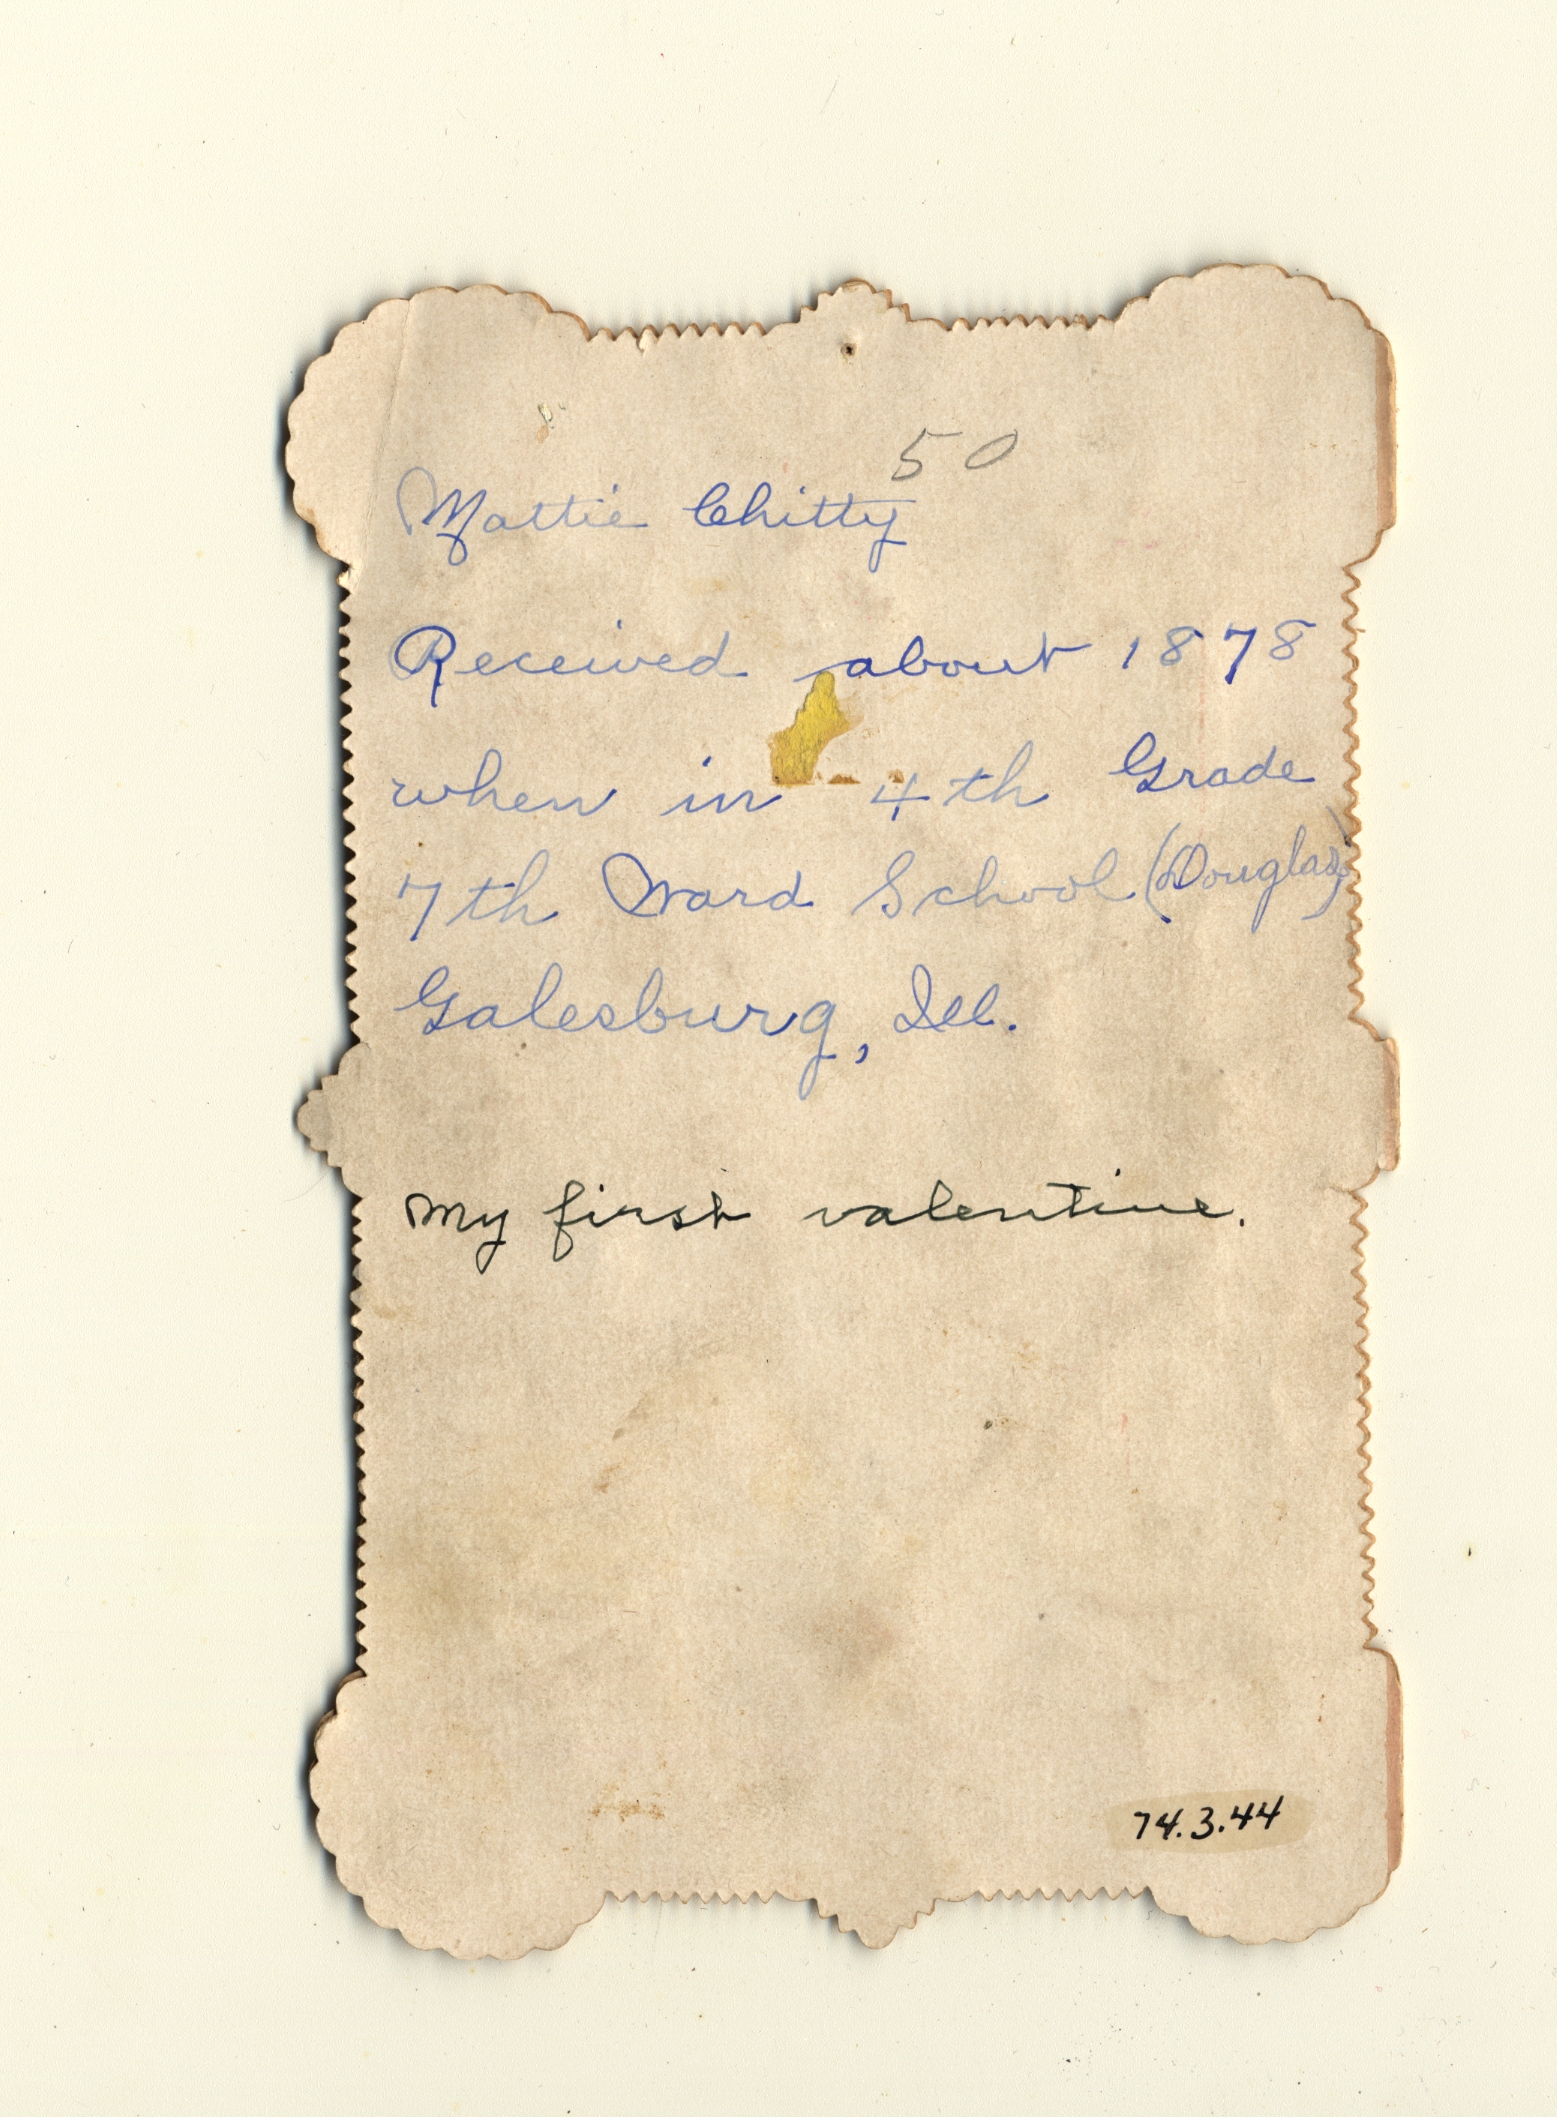 50
Mattie Chitty
Received about 1878
when in 4th Grade
7th Ward School (Douglas)
Galesburg, Ill.
My first valentine.
74.3.44